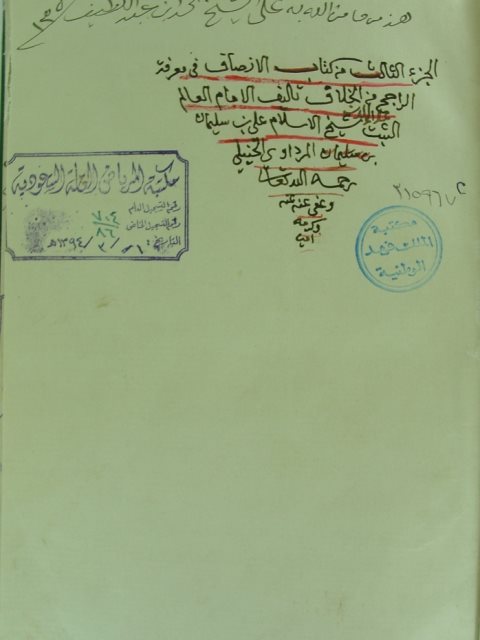 هذا مما من الله به على الشيخ محمد بن عبد اللطيف
الجزء الثالث من كتاب الانصاف في معرفة
الراجح من الخلاف تاليف الامام العالم
شيخ الاسلام علي بن سليمان
بن سليمان المرداوي الحنبلي
رحمه الله تعالى
وعفى عنه
وكرمه
امين
مكتبة الرياض العامة السعودية
رقم التسجيل العام ٧٠٤
رقم التسجيل الخاص ٨٦
التاريخ: ١ / ٣ / ١٣٩٤هـ
مكتبة
الملك فهد
الوطنية